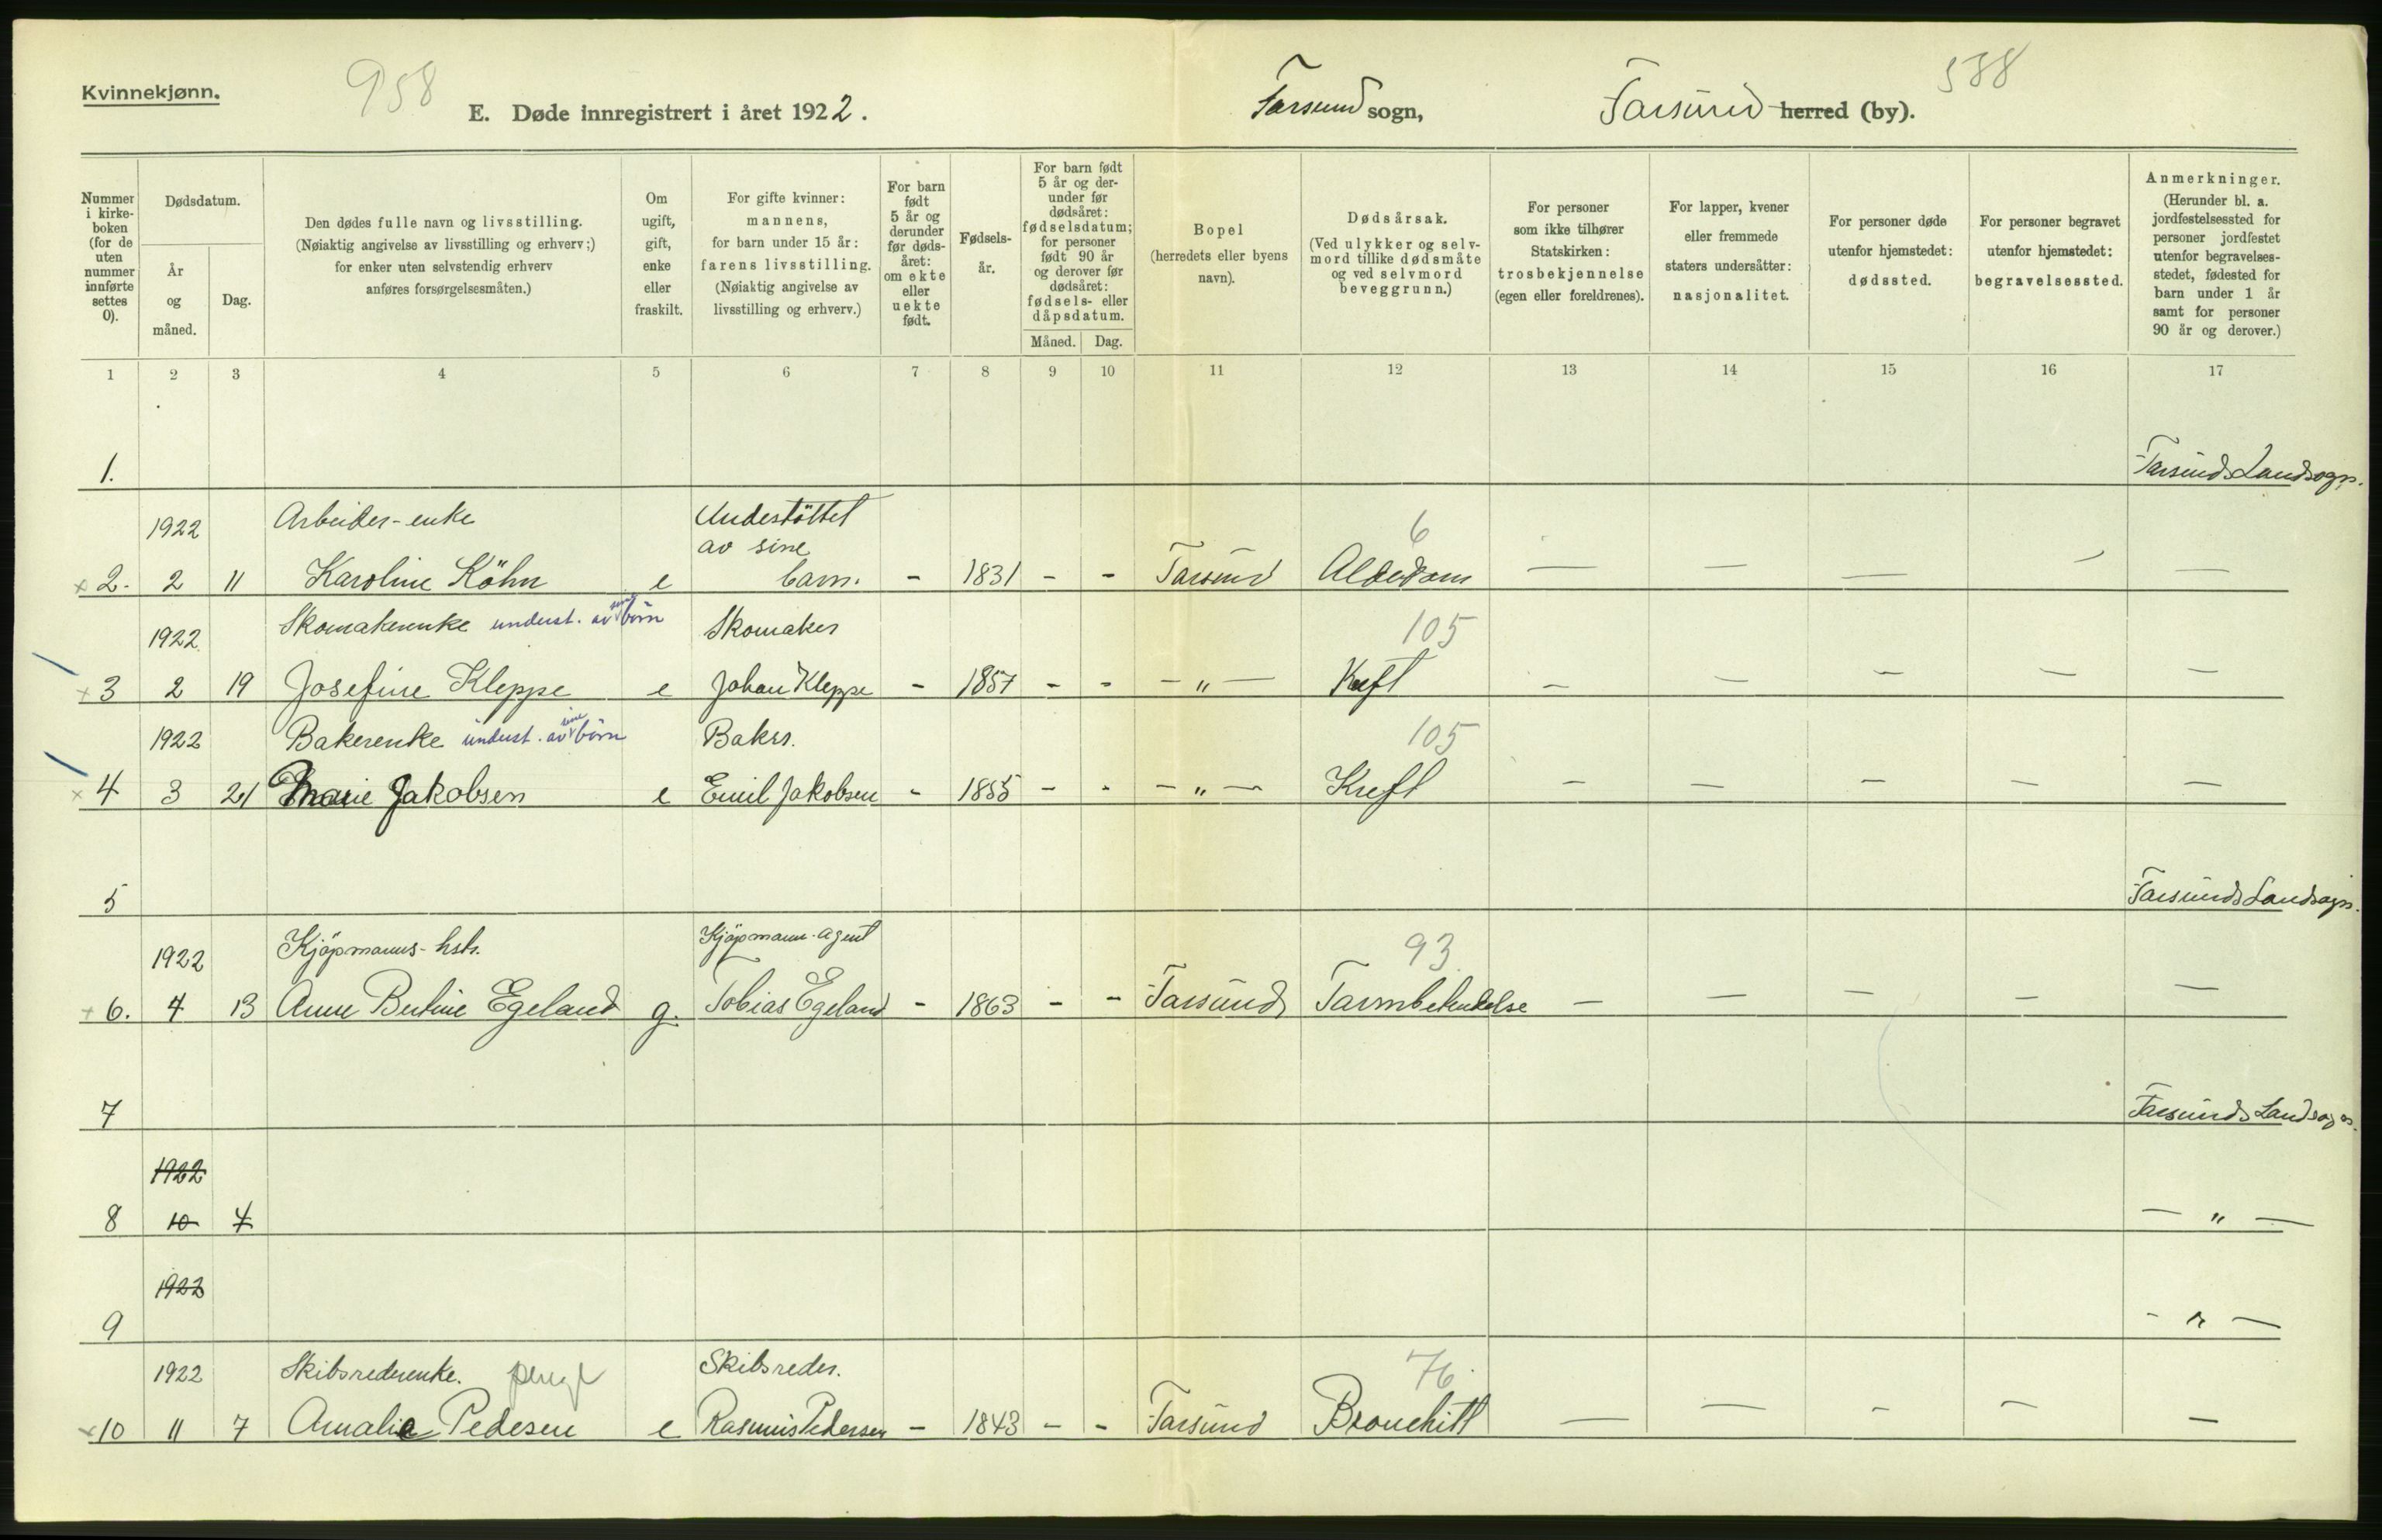 Kvinnekjønn.
958
E. Døde innregistrert i året 1922.
Farsund sogn,
Farsund herred (by).
588
Nummer i kirkeboken (for de uten nummer innførte settes 0).
Dødsdatum.
År og måned.
Dag.
Den dødes fulle navn og livsstilling.
(Nøiaktig angivelse av livsstilling og erhverv;)
for enker uten selvstendig erhverv
anføres forsørgelsesmåten.)
Om ugift, gift, enke eller fraskilt.
For gifte kvinner:
mannens,
for barn under 15 år:
farens livsstilling.
(Nøiaktig angivelse av
livsstilling og erhverv.)
For barn født 5 år og derunder før dødsåret: om ekte eller uekte født.
Fødselsår.
For barn født 5 år og derunder før dødsåret: fødselsdatum; for personer født 90 år og derover før dødsåret: fødsels- eller dåpsdatum.
Måned.
Dag.
Bopel
(herredets eller byens
navn).
Dødsårsak.
(Ved ulykker og selv-
mord tillike dødsmåte
og ved selvmord
beveggrunn.)
For personer
som ikke tilhører
Statskirken:
trosbekjennelse
(egen eller foreldrenes).
For lapper, kvener
eller fremmede
staters undersåtter:
nasjonalitet.
For personer døde
utenfor hjemstedet:
dødssted.
For personer begravet
utenfor hjemstedet:
begravelsessted.
Anmerkninger.
(Herunder bl. a.
jordfestelsessted for
personer jordfestet
utenfor begravelses-
stedet, fødested for
barn under 1 år
samt for personer
90 år og derover.)
1 2 3 4 5 6 7 8 9 10 11 12 13 14 15 16 17
1. Farsunds Landsogn.
1922 Arbeider-enke Understöttet 6
av sine
× 2. 2 11 Karoline Köhn e barn. - 1831 - - Farsund Alderdom — — — — —
1922 Skomakerenke underst. av sine börn Skomaker 105
× 3 2 19 Josefine Kleppe e Johan Kleppe - 1857 - - — " — Kreft — — — — —
1922 Bakerenke underst. av sine börn Baker. 105
× 4 3 21 Marie Jakobsen e Emil Jakobsen - 1855 - - — " — Kreft — — — — —
5 Farsunds Landsogn.
1922 Kjöpmanns-hstr. Kjöpmann-Agent 93
× 6. 4 13 Anne Bertine Egeland g. Tobias Egeland - 1863 - - Farsund Tarmbetendelse — — — — —
7 Farsunds Landsogn.
1922
8 10 4 — " —
1922
9 - " —
1922 Skibsrederenke. Skibsreder. 76.
× 10 11 7 Amalie Pedersen e Rasmus Pedersen - 1843 - - Farsund Bronchitt — — — — —